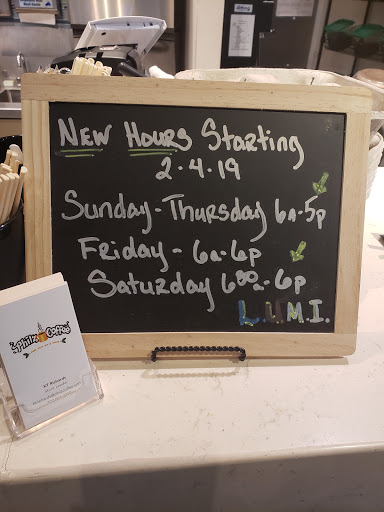 New Hours Starting
2.4.19
Sunday-Thursday 6a-5p
Friday - 6a-6p
Saturday 6³⁰a-6p
L.U.M.I.
Philz Coffee